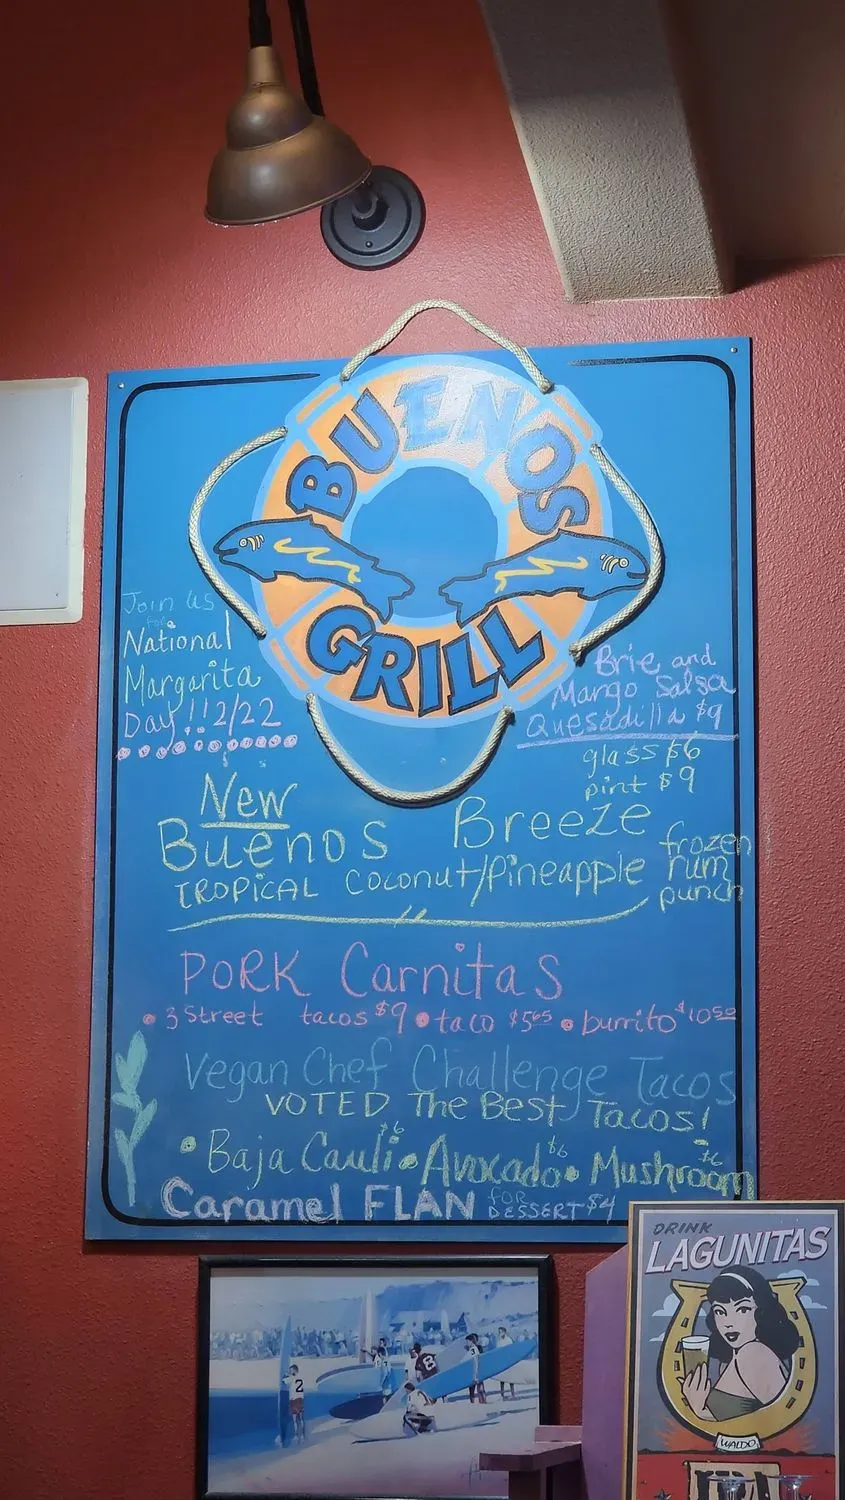 BUENOS
GRILL
Join us
for
National
Margarita
Day!! 2/22
Brie and
Mango Salsa
Quesadilla $9
glass $6
pint $9
New
Buenos Breeze
TROPICAL Coconut/Pineapple
frozen
rum
punch
PORK CarnitaS
• 3 Street tacos $9 • taco $5.65 • burrito $10.50
Vegan Chef Challenge Tacos
VOTED The Best Tacos!
• Baja Cauli $6 • Avocado $6 • Mushroom $6
Caramel FLAN FOR DESSERT $4
DRINK
LAGUNITAS
WALDO
IPA
2
8